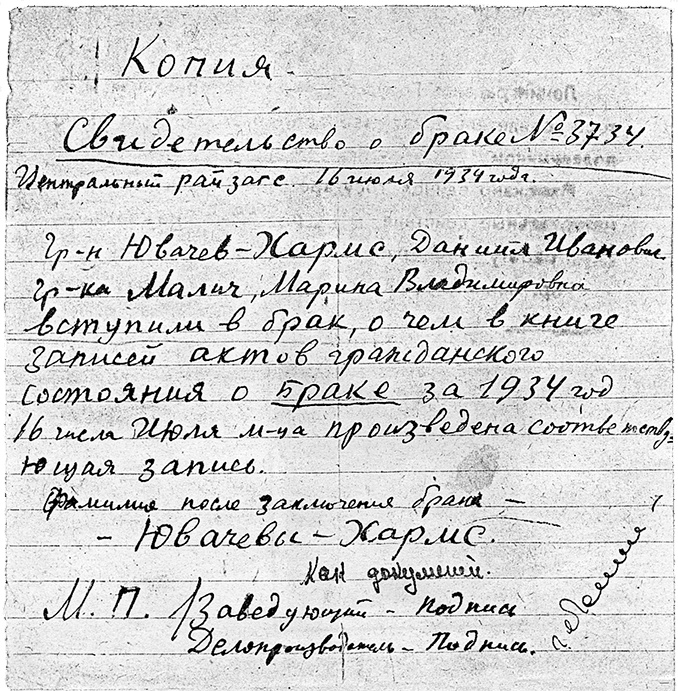 Копия.
Свидетельство о браке № 3734.
Центральный райзагс. 16 июля 1934 года.
Гр-н Ювачев-Хармс, Даниил Иванович
Гр-ка Малич, Марина Владимировна
вступили в брак, о чем в книге
записей актов гражданского
состояния о браке за 1934 год
16 числа Июля м-ца произведена соответству-
ющая запись.
Фамилия после заключения брака —
— Ювачевы-Хармс.
Как документ.
М. П. Заведующий - подпись
Делопроизводитель - Подпись.